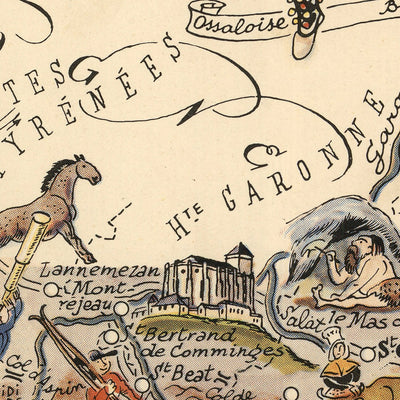 Ossaloise
TES
PYRÉNÉES
Hᵀᴱ GARONNE
Garo
Lannemezan
Mont-
réjeau
St Bertrand
de Comminges
St Beat
Col de
Col
d'Aspin
IDI
Salat
le Mas d
St